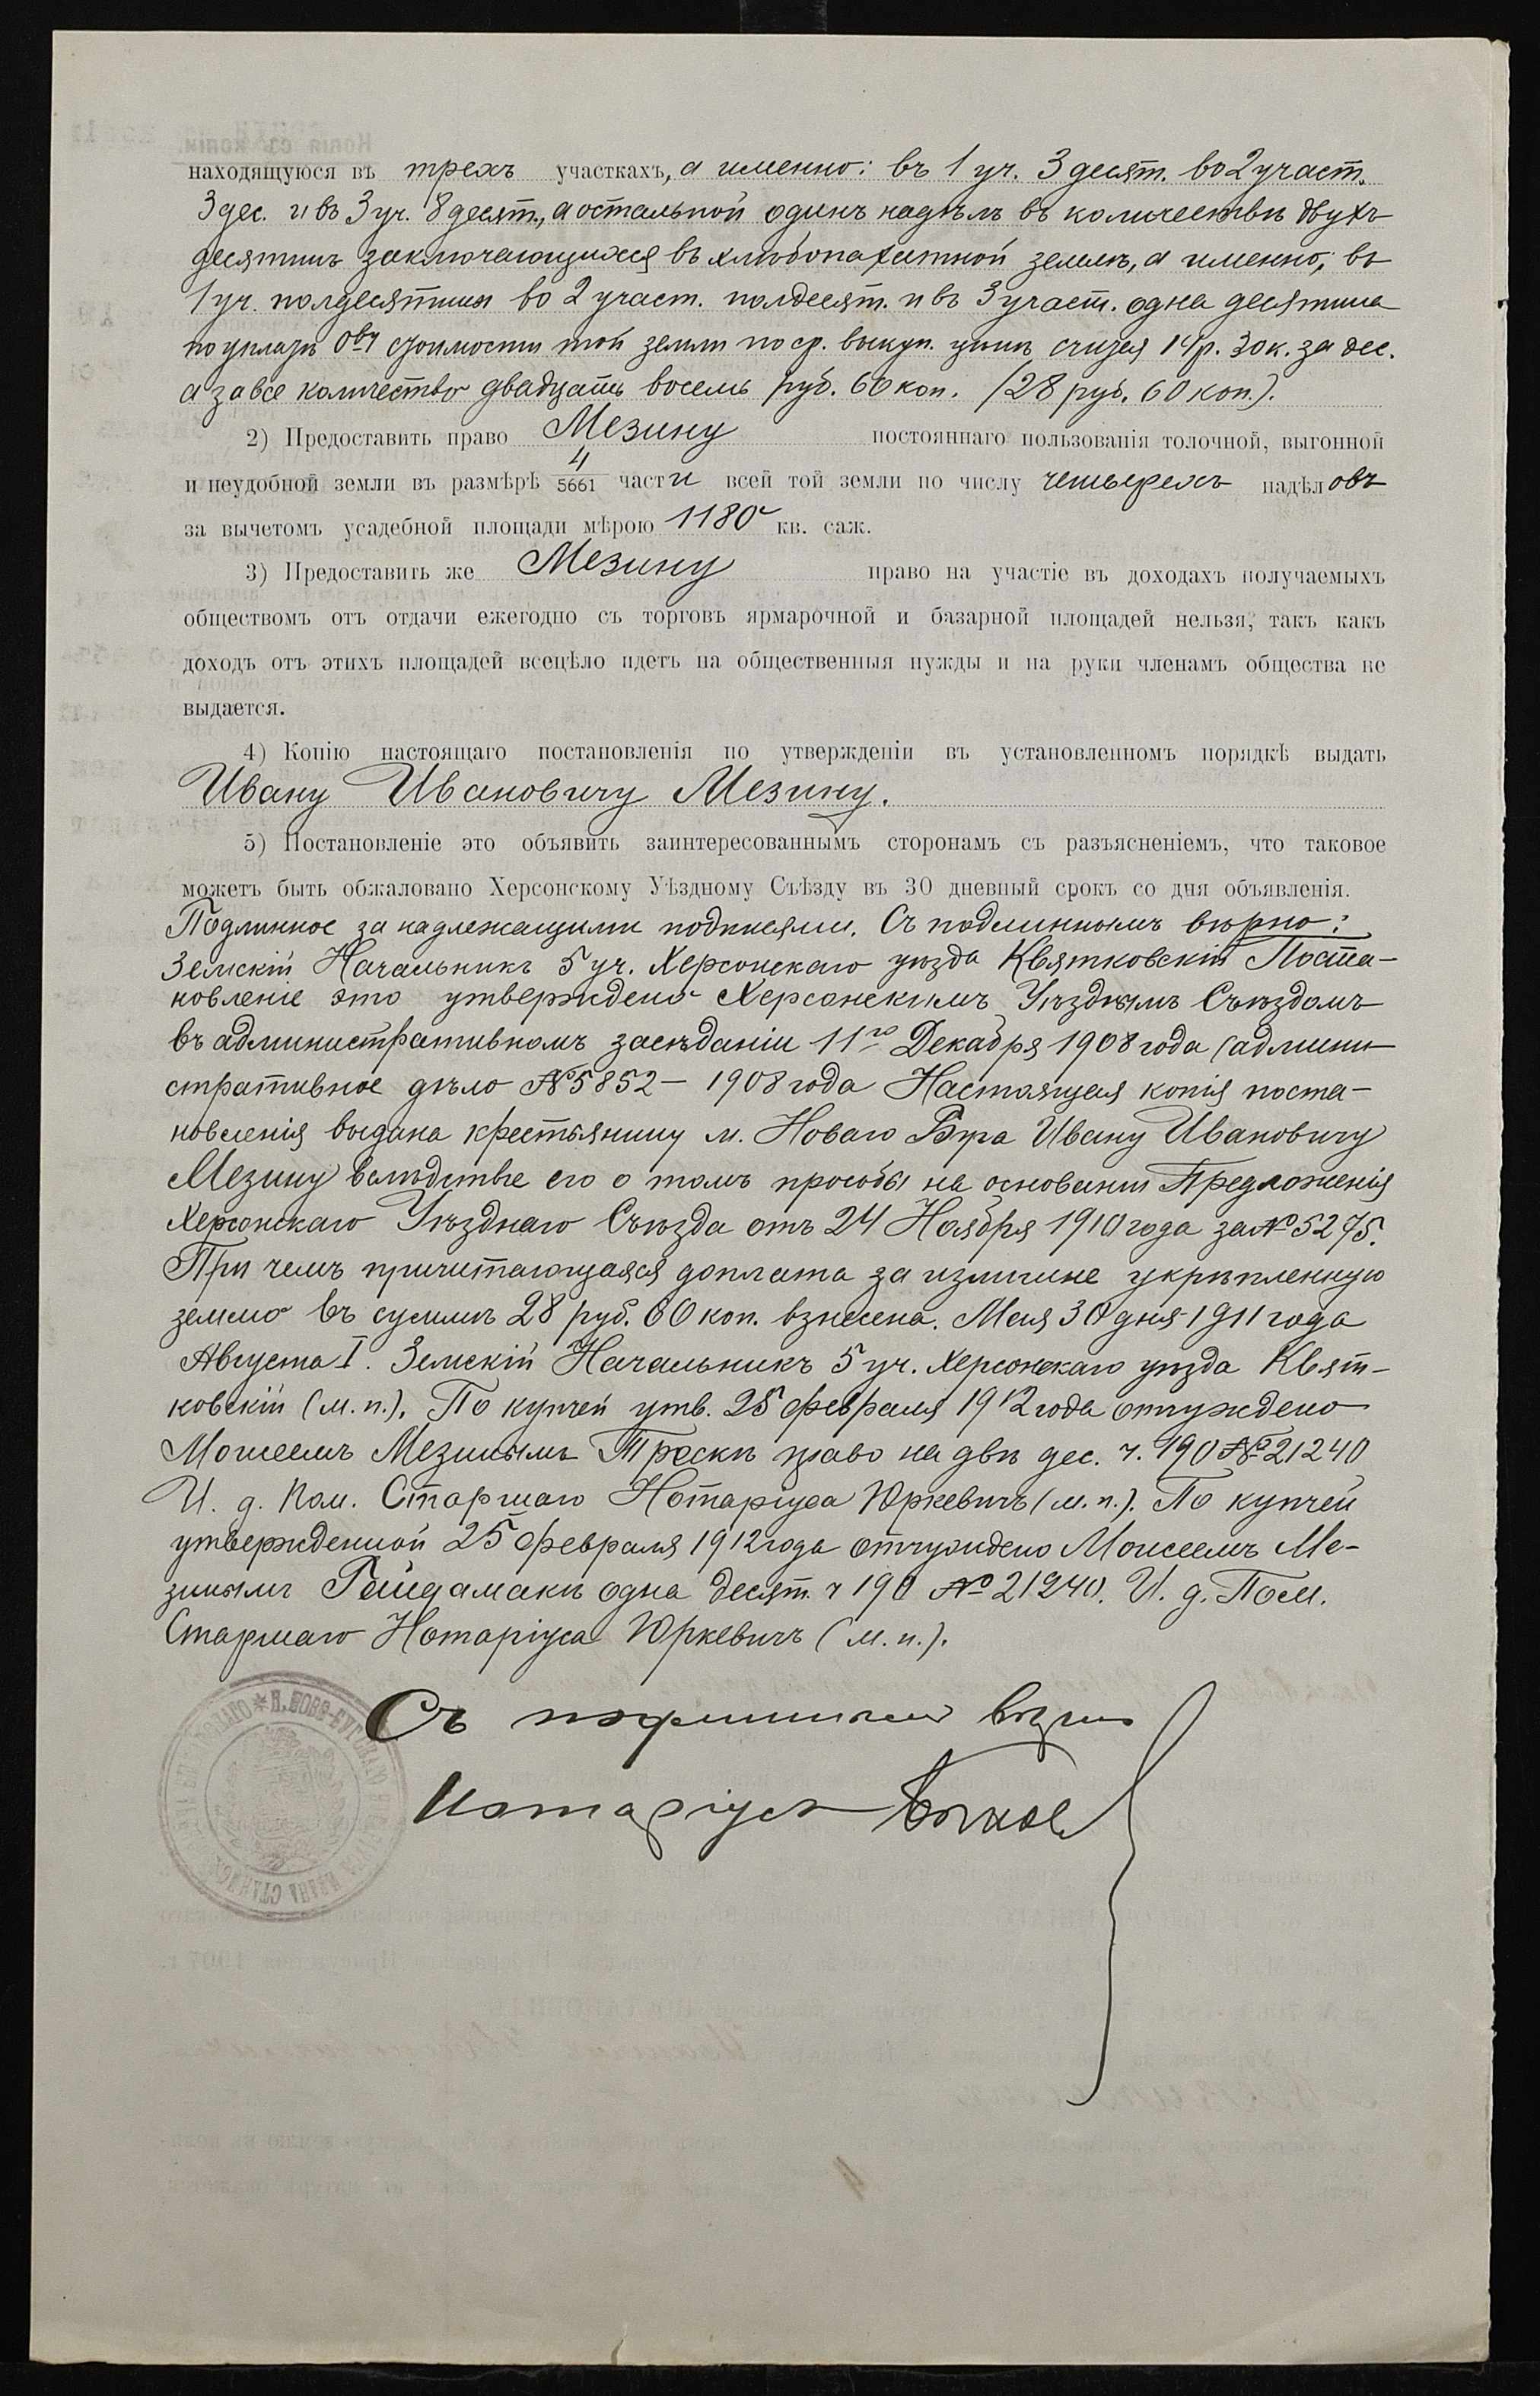 находящуюся въ трехъ участкахъ, а именно: въ 1 уч. 3 десят. во 2 участ.
3 дес. и въ 3 уч. 8 десят., а остальной одинъ надѣлъ въ количествѣ двухъ
десятинъ заключающихся въ хлѣбопахатной землѣ, а именно; въ
1 уч. полдесятины во 2 участ. полдесят. и въ 3 участ. одна десятина
по уплатѣ стоимости той земли по ср. выкуп. цѣнѣ считая 14 р. 30 к. за дес.
а за все количество двадцать восемь руб. 60 коп. (28 руб. 60 коп.).
2) Предоставить право Мезину постояннаго пользованія толочной, выгонной
и неудобной земли въ размѣрѣ 4/5661 части всей той земли по числу четырехъ надѣловъ
за вычетомъ усадебной площади мѣрою 1180 кв. саж.
3) Предоставить же Мезину право на участіе въ доходахъ получаемыхъ
обществомъ отъ отдачи ежегодно съ торговъ ярмарочной и базарной площадей нельзя, такъ какъ
доходъ отъ этихъ площадей всецѣло идетъ на общественныя нужды и на руки членамъ общества не
выдается.
4) Копію настоящаго постановленія по утвержденіи въ установленномъ порядкѣ выдать
Ивану Ивановичу Мезину.
5) Постановленіе это объявить заинтересованнымъ сторонамъ съ разъясненіемъ, что таковое
можетъ быть обжаловано Херсонскому Уѣздному Съѣзду въ 30 дневный срокъ со дня объявленія.
Подлинное за надлежащими подписями. Съ подлиннымъ вѣрно:
Земскій Начальникъ 5 уч. Херсонскаго уѣзда Квятковскій Поста-
новленіе это утверждено Херсонскимъ Уѣзднымъ Съѣздомъ
въ административномъ засѣданіи 11го Декабря 1908 года (админи-
стративное дѣло № 5852 – 1908 года Настоящая копія поста-
новленія выдана крестьянину м. Новаго Буга Ивану Ивановичу
Мезину вслѣдствіе его о томъ просьбы на основаніи Предложенія
Херсонскаго Уѣзднаго Съѣзда отъ 24 Ноября 1910 года за № 5275.
При чемъ причитающаяся доплата за излишне укрѣпленную
землю въ суммѣ 28 руб. 60 коп. взнесена. Мая 30 дня 1911 года
Августа I. Земскій Начальникъ 5 уч. Херсонскаго уѣзда Квят-
ковскій (м. п.). По купчей утв. 25 февраля 1912 года отчуждено
Моисеемъ Мезинымъ право на двѣ дес. ч. 190 № 21240
И. д. Пом. Старшаго Нотаріуса Юркевичъ (м. п.). По купчей
утвержденной 25 февраля 1912 года отчуждено Моисеемъ Ме-
зинымъ Гайдамакѣ одна десят. ч 190 № 21240. И. д. Пом.
Старшаго Нотаріуса Юркевичъ (м. п.).
Съ подлиннымъ вѣрно
Нотаріусъ